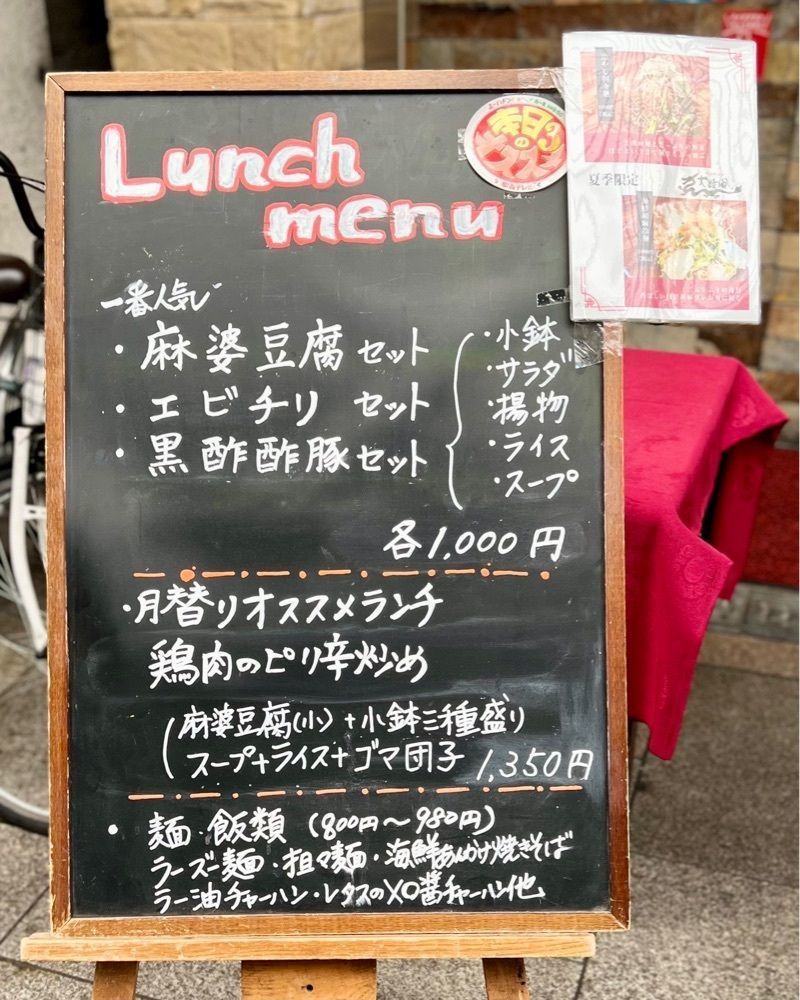 Lunch
menu
一番人気!
・麻婆豆腐 セット
・エビチリ セット
・黒酢酢豚セット
・小鉢
・サラダ
・揚物
・ライス
・スープ
各1,000円
・月替りオススメランチ
鶏肉のピリ辛炒め
麻婆豆腐(小)+小鉢三種盛り
スープ+ライス+ゴマ団子 1,350円
・麺・飯類 (800円〜980円)
ラーズー麺・担々麺・海鮮あんかけ焼きそば
ラー油チャーハン・レタスのXO醬チャーハン他
夏季限定